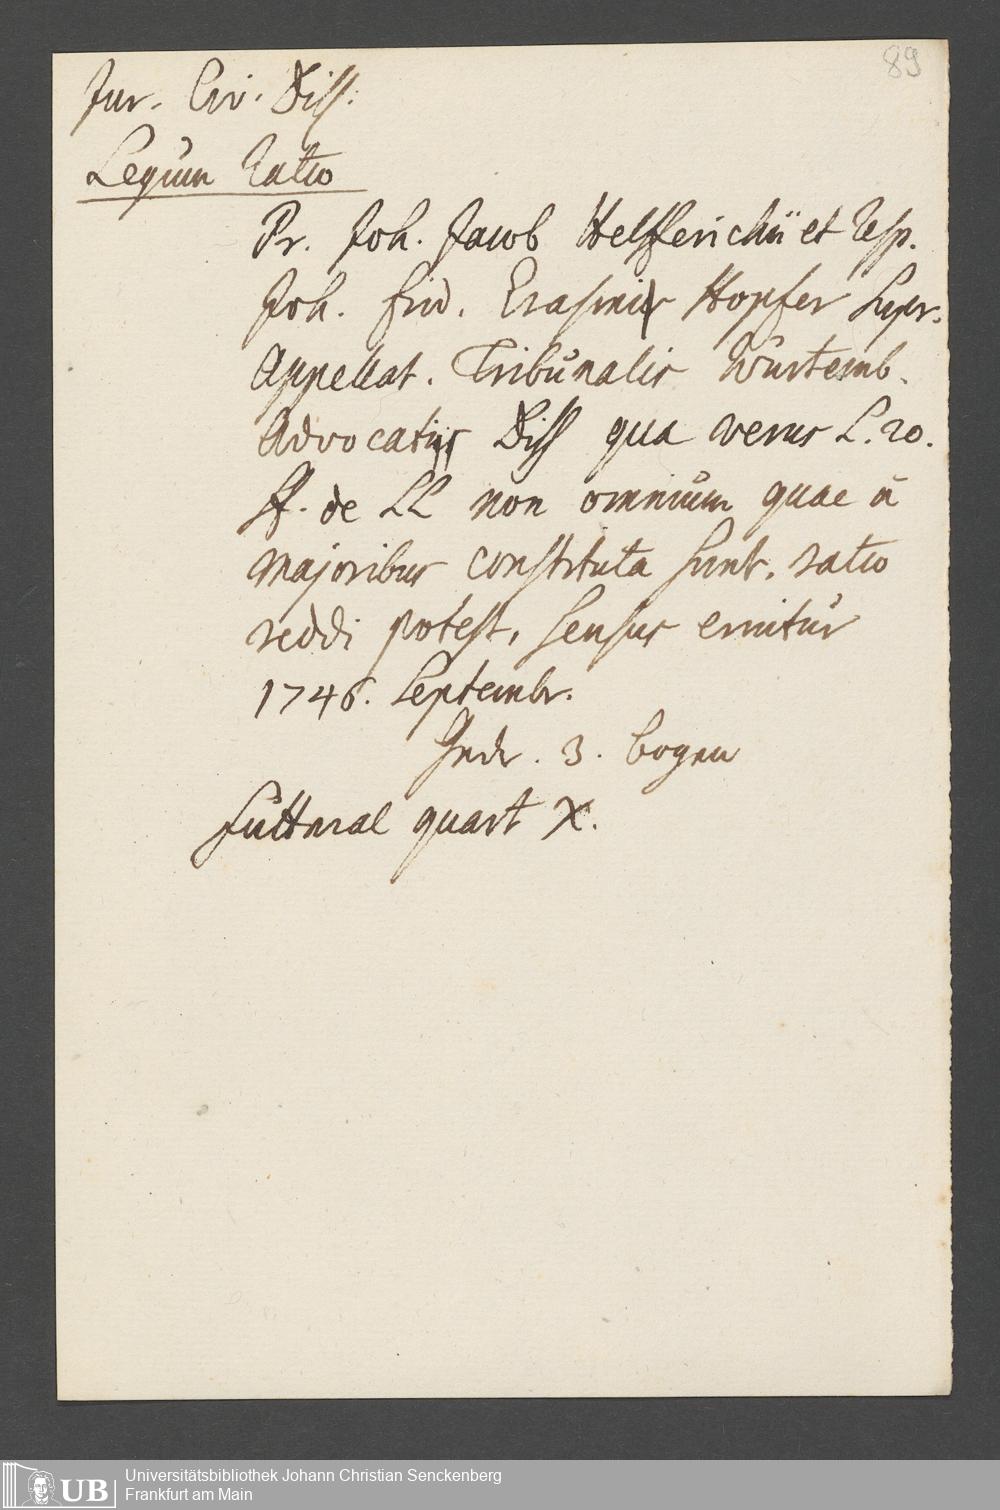 89
Jur. Civ. Diss.
Legum Ratio
Pr. Joh. Jacob Helfferichii et Resp.
Joh. Frid. Erasmi Hopfer Supr.
Appellat. Tribunalis Würtemb.
Advocati Diss qua verus L. 20.
ff. de LL non omnium quae a
majoribus constituta sunt, ratio
reddi potest, sensus eruitur
1746. Septembr.
Gedr. 3. bogen
Futteral quart X.
UB
Universitätsbibliothek Johann Christian Senckenberg
Frankfurt am Main